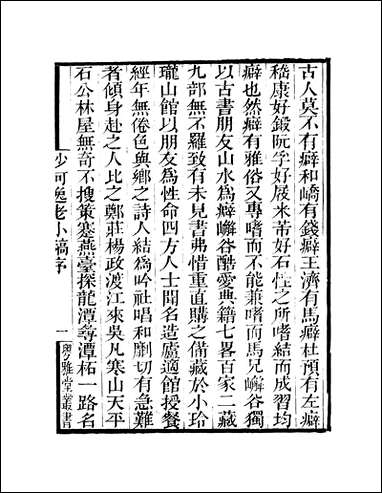 古人莫不有癖和嶠有錢癖王濟有馬癖杜預有左癖
嵇康好鍛阮孚好屐米芾好石性之所嗜結而成習均
癖也然癖有雅俗又專嗜而不能兼嗜而馬兄嶰谷獨
以古書朋友山水為癖嶰谷酷愛典籍七畧百家二藏
九部無不羅致有未見書弗惜重直購之備藏於小玲
瓏山館以朋友為性命四方人士聞名造廬適館授餐
經年無倦色與鄉之詩人結為吟社唱和劘切有急難
者傾身赴之人比之鄭莊楊政渡江來吳凡寒山天平
石公林屋無奇不搜策蹇燕臺探龍潭尋潭柘一路名
沙河逸老小稿序
一
粵雅堂叢書